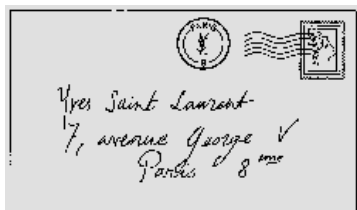 PARIS
8
Yves Saint Laurent
17, avenue George V
Paris 8 eme